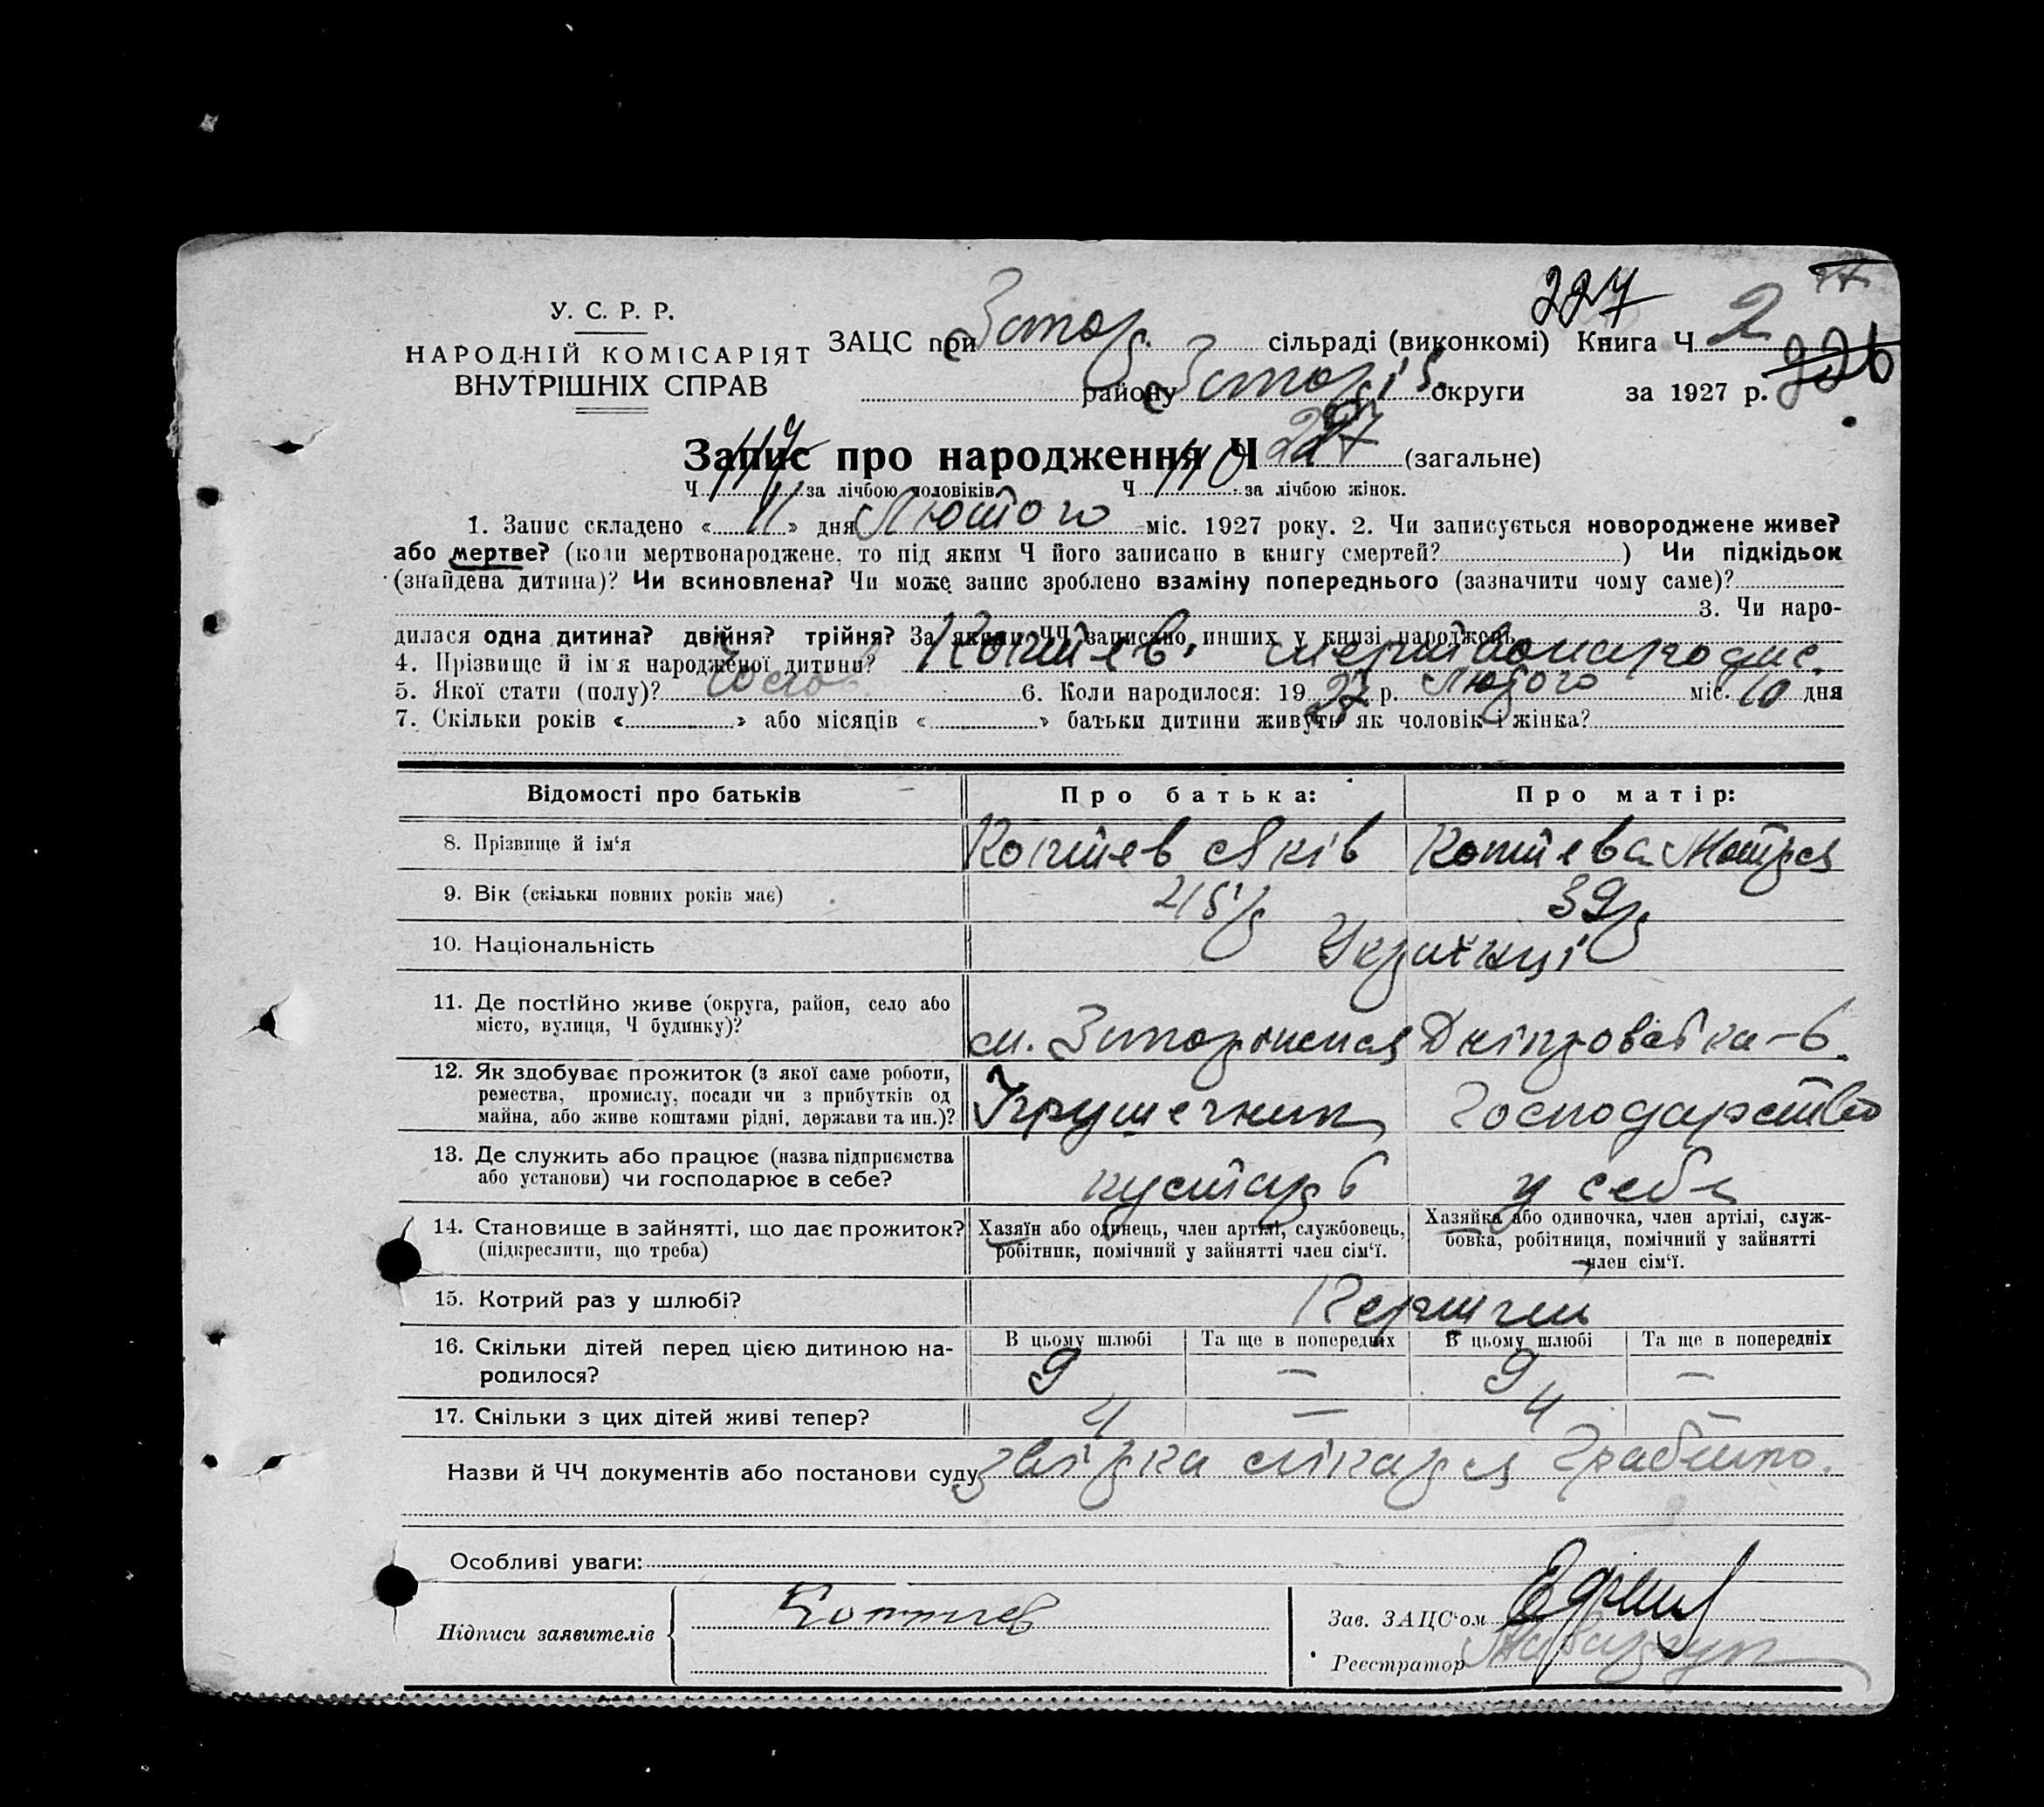 227
У. С. Р. Р.
ЗАЦС при Запор. сільраді (виконкомі) Книга Ч 2
НАРОДНІЙ КОМІСАРІЯТ
ВНУТРІШНІХ СПРАВ
району Запоріз. округи за 1927 р. 226
Запис про народження Ч 227 (загальне)
Ч 117 за лічбою чоловіків. Ч 110 за лічбою жінок.
1. Запис складено « 11 » дня Лютого міс. 1927 року. 2. Чи записується новороджене живе?
або мертве? (коли мертвонароджене, то під яким Ч його записано в книгу смертей? ) Чи підкідьок
(знайдена дитина)? Чи всиновлена? Чи може запис зроблено взаміну попереднього (зазначити чому саме)?
3. Чи наро-
дилася одна дитина? двійня? трійня? За якими ЧЧ записано инших у книзі народжень
4. Прізвище й ім'я народженої дитини? Коптєв, мертвонародже.
5. Якої стати (полу)? Чолов 6. Коли народилося: 19 27 р. Лютого міс. 10 дня
7. Скільки років « » або місяців « » батьки дитини живуть як чоловік і жінка?
Відомості про батьків Про батька: Про матір:
8. Прізвище й ім'я Коптєв Яків Коптєва Мотря
9. Вік (скільки повних років має) 45 р 39 р.
10. Національність Українці
11. Де постійно живе (округа, район, село або
місто, вулиця, Ч будинку)?
м. Запоріжжя Дніпровська – 6.
12. Як здобуває прожиток (з якої саме роботи,
ремества, промислу, посади чи з прибутків од
майна, або живе коштами рідні, держави та ин.)?
Господарство
13. Де служить або працює (назва підприємства
або установи) чи господарює в себе?
кустарь у себе
14. Становище в зайнятті, що дає прожиток?
(підкреслити, що треба)
Хазяїн або одинець, член артілі, службовець,
робітник, помічний у зайнятті член сім'ї.
Хазяйка або одиночка, член артілі, служ-
бовка, робітниця, помічний у зайнятті
член сім'ї.
15. Котрий раз у шлюбі?
В цьому шлюбі Та ще в попередніх В цьому шлюбі Та ще в попередніх
16. Скільки дітей перед цією дитиною на-
родилося?
9 – 9 –
17. Скільки з цих дітей живі тепер? 4 – 4
Назви й ЧЧ документів або постанови суду довірка лікаря
Особливі уваги:
Підписи заявителів Коптев
Зав. ЗАЦС'ом
Реєстратор